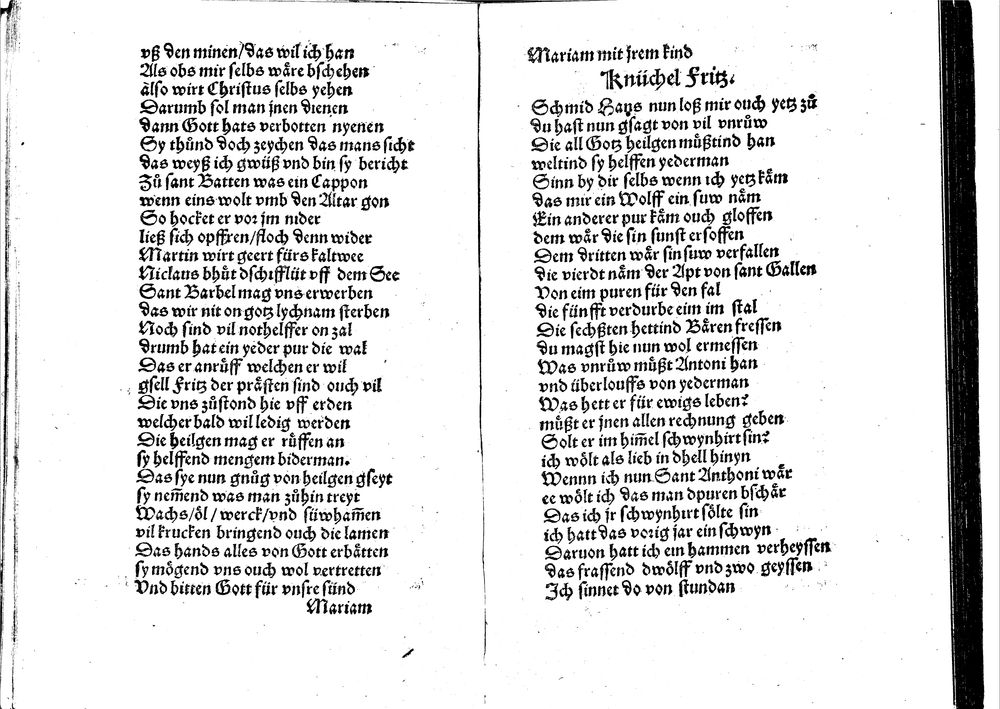 vß den minen/das wil ich han
Als obs mir selbs wåre bschehen
also wirt Christus selbs yehen
Darumb sol man jnen dienen
dann Gott hats verbotten nyenen
Sy thůnd doch zeychen das mans sicht
das weyß ich gwüß vnd bin sy bericht
Zů sant Batten was ein Cappon
wenn eins wolt vmb den Altar gon
So hocket er vor jm nider
ließ sich opffren/floch denn wider
Martin wirt geert fürs kaltwee
Niclaus bhůt dschifflüt vff dem See
Sant Barbel mag vns erwerben
das wir nit on gotz lychnam sterben
Noch sind vil nothelffer on zal
drumb hat ein yeder pur die wal
Das er anrůff welchen er wil
gsell Fritz der prästen sind ouch vil
Die vns zůstond hie vff erden
welcher bald wil ledig werden
Die heilgen mag er růffen an
sy helffend mengem biderman.
Das sye nun gnůg von heilgen gseyt
sy nem̃end was man zůhin treyt
Wachs/öl/werck/vnd süwham̃en
vil krucken bringend ouch die lamen
Das hands alles von Gott erbätten
sy mögend vns ouch wol vertretten
Vnd bitten Gott für vnsre sünd
Mariam
Mariam mit jrem kind
Knüchel Fritz.
Schmid Hans nun loß mir ouch yetz zů
du hast nun gsagt von vil vnrůw
Die all Gotz heilgen můßtind han
weltind sy helffen yederman
Sinn by dir selbs wenn ich yetz kåm
das mir ein Wolff ein suw nåm
Ein anderer pur kåm ouch gloffen
dem wår die sin sunst ersoffen
Dem dritten wår sin suw verfallen
die vierdt nåm der Apt von sant Gallen
Von eim puren für den fal
die fünfft verdurbe eim im stal
Die sechßten hettind Båren fressen
du magst hie nun wol ermessen
Was vnrůw můßt Antoni han
vnd überlouffs von yederman
Was hett er für ewigs leben?
můßt er jnen allen rechnung geben
Solt er im him̃el schwynhirt sin?
ich wölt als lieb in dhell hinyn
Wennn ich nun Sant Anthoni wår
ee wölt ich das man dpuren bschår
Das ich jr schwynhirt sölte sin
ich hatt das vorig jar ein schwyn
Daruon hatt ich ein hammen verheyssen
das frassend dwölff vnd zwo geyssen
Ich sinnet do von stundan